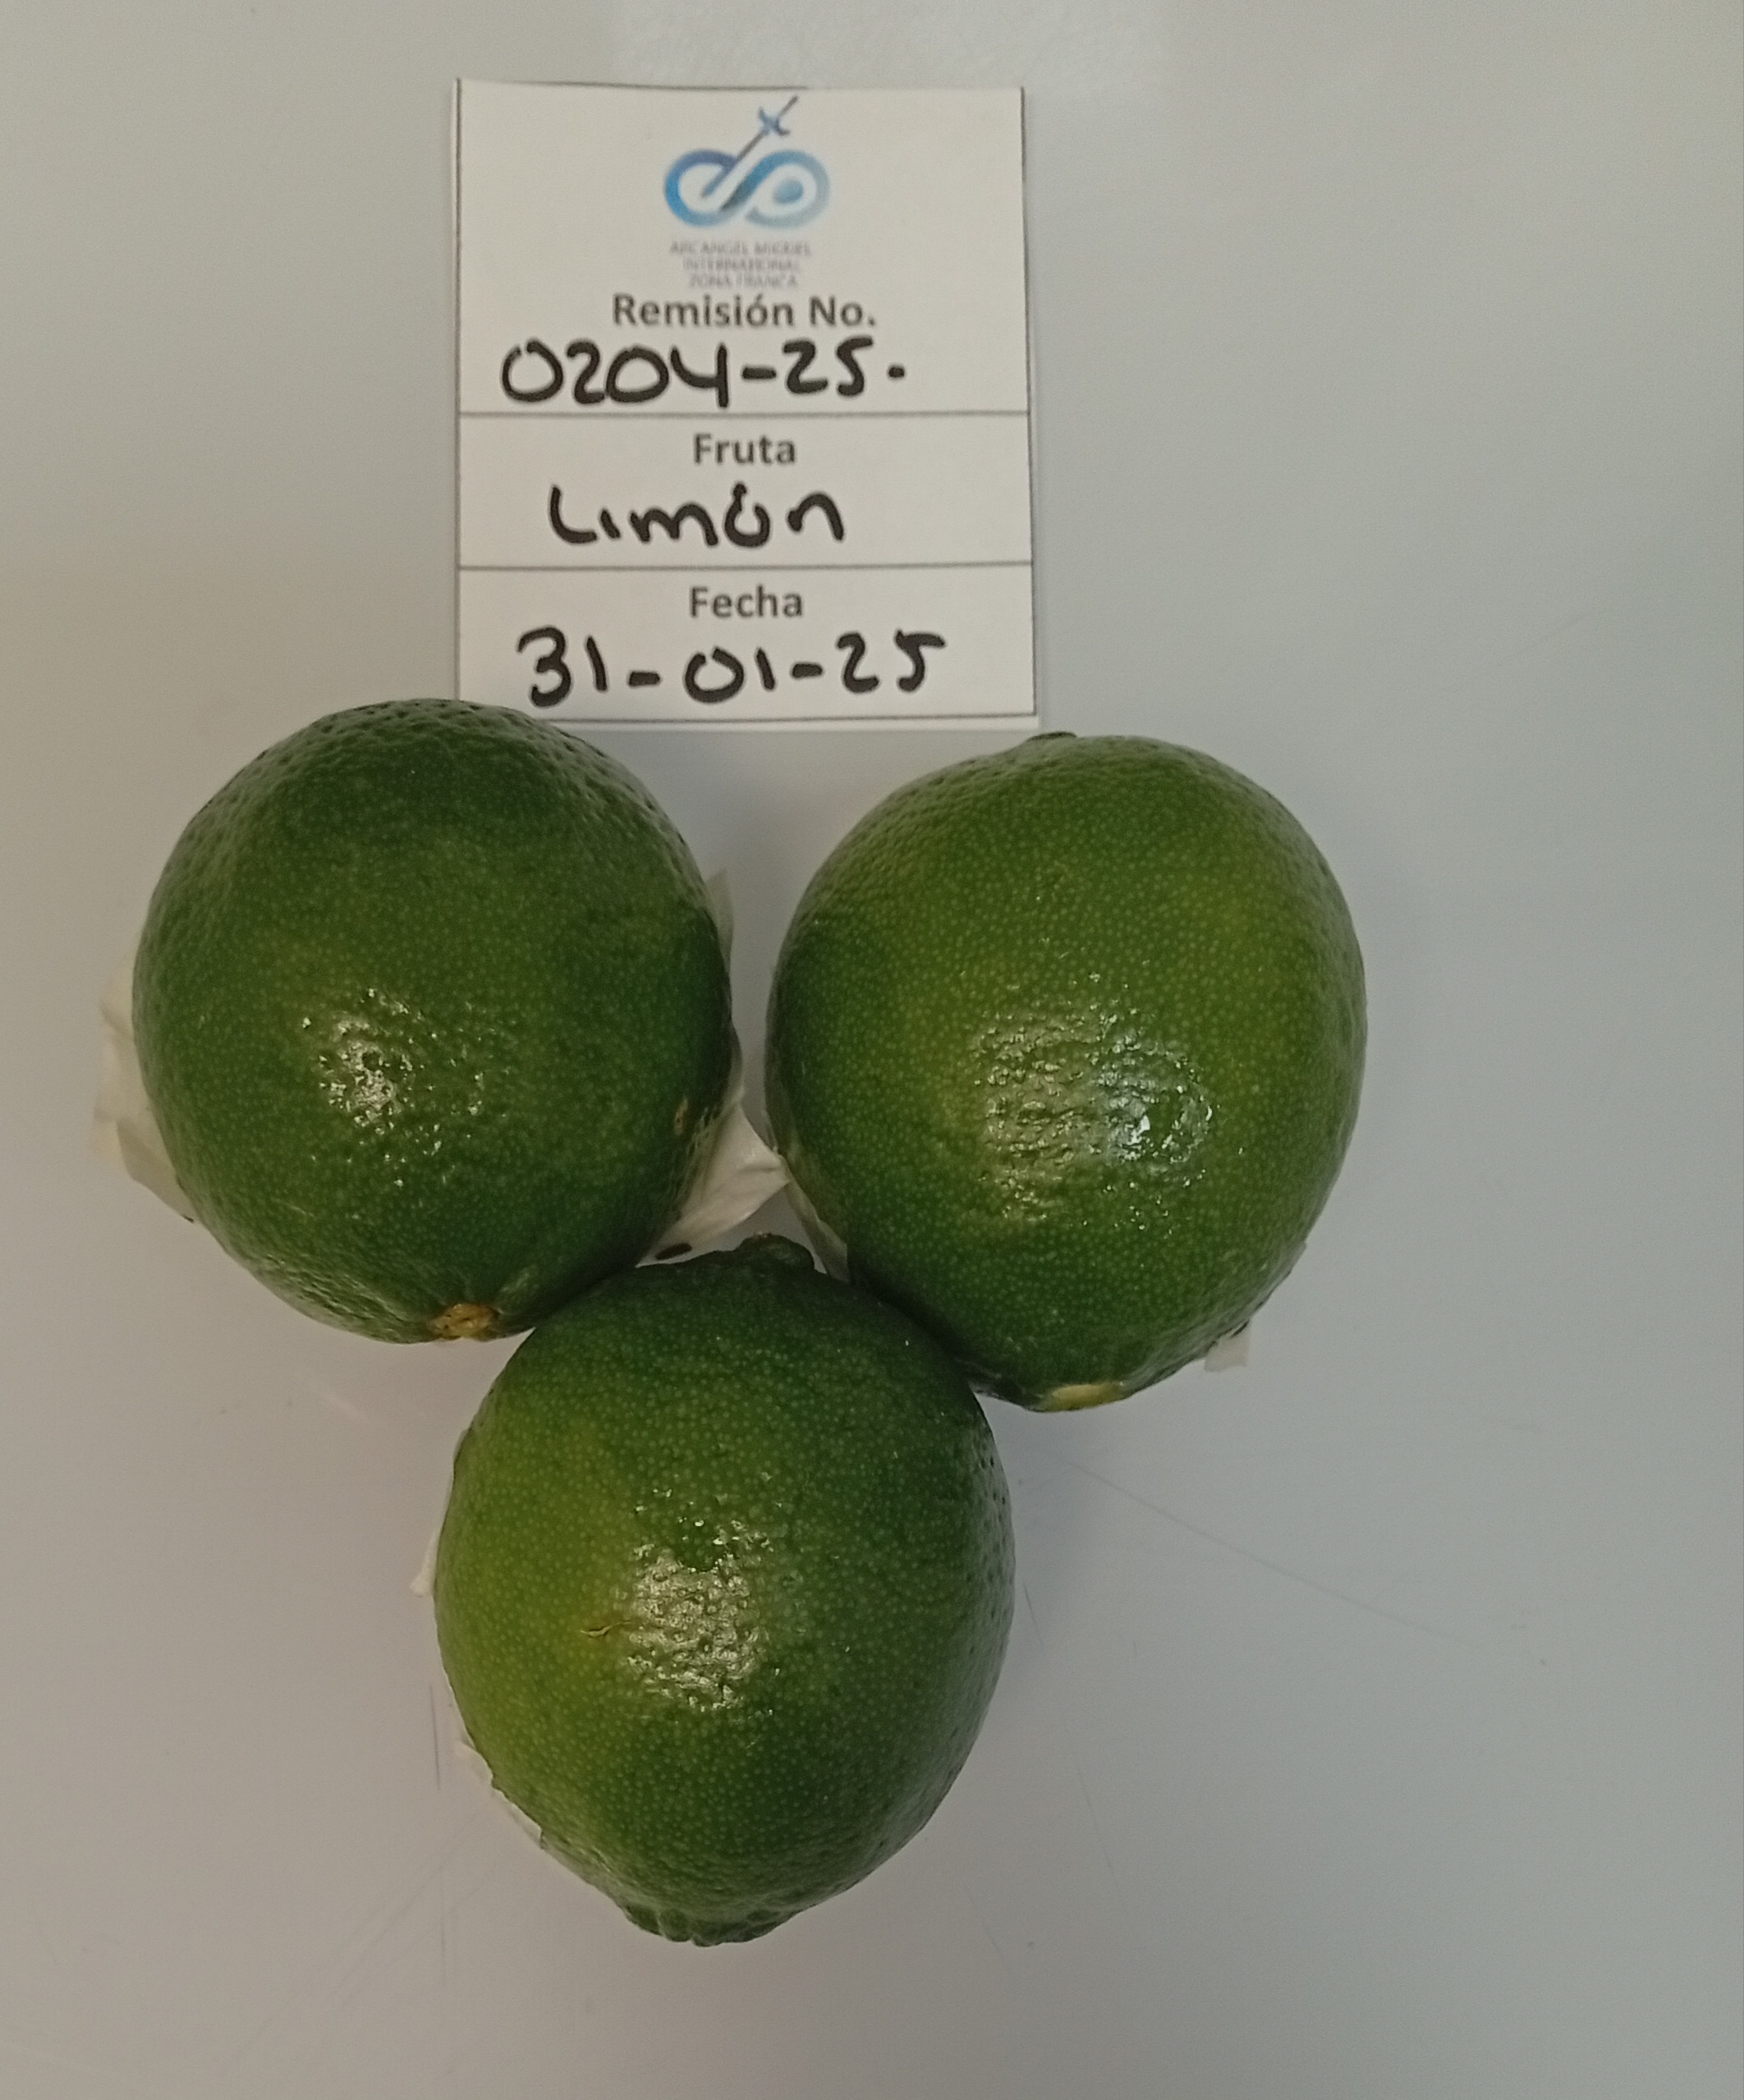 ARCANGEL MIGUEL
INTERNATIONAL
ZONA FRANCA
Remisión No.
0204-25.
Fruta
Limón
Fecha
31-01-25